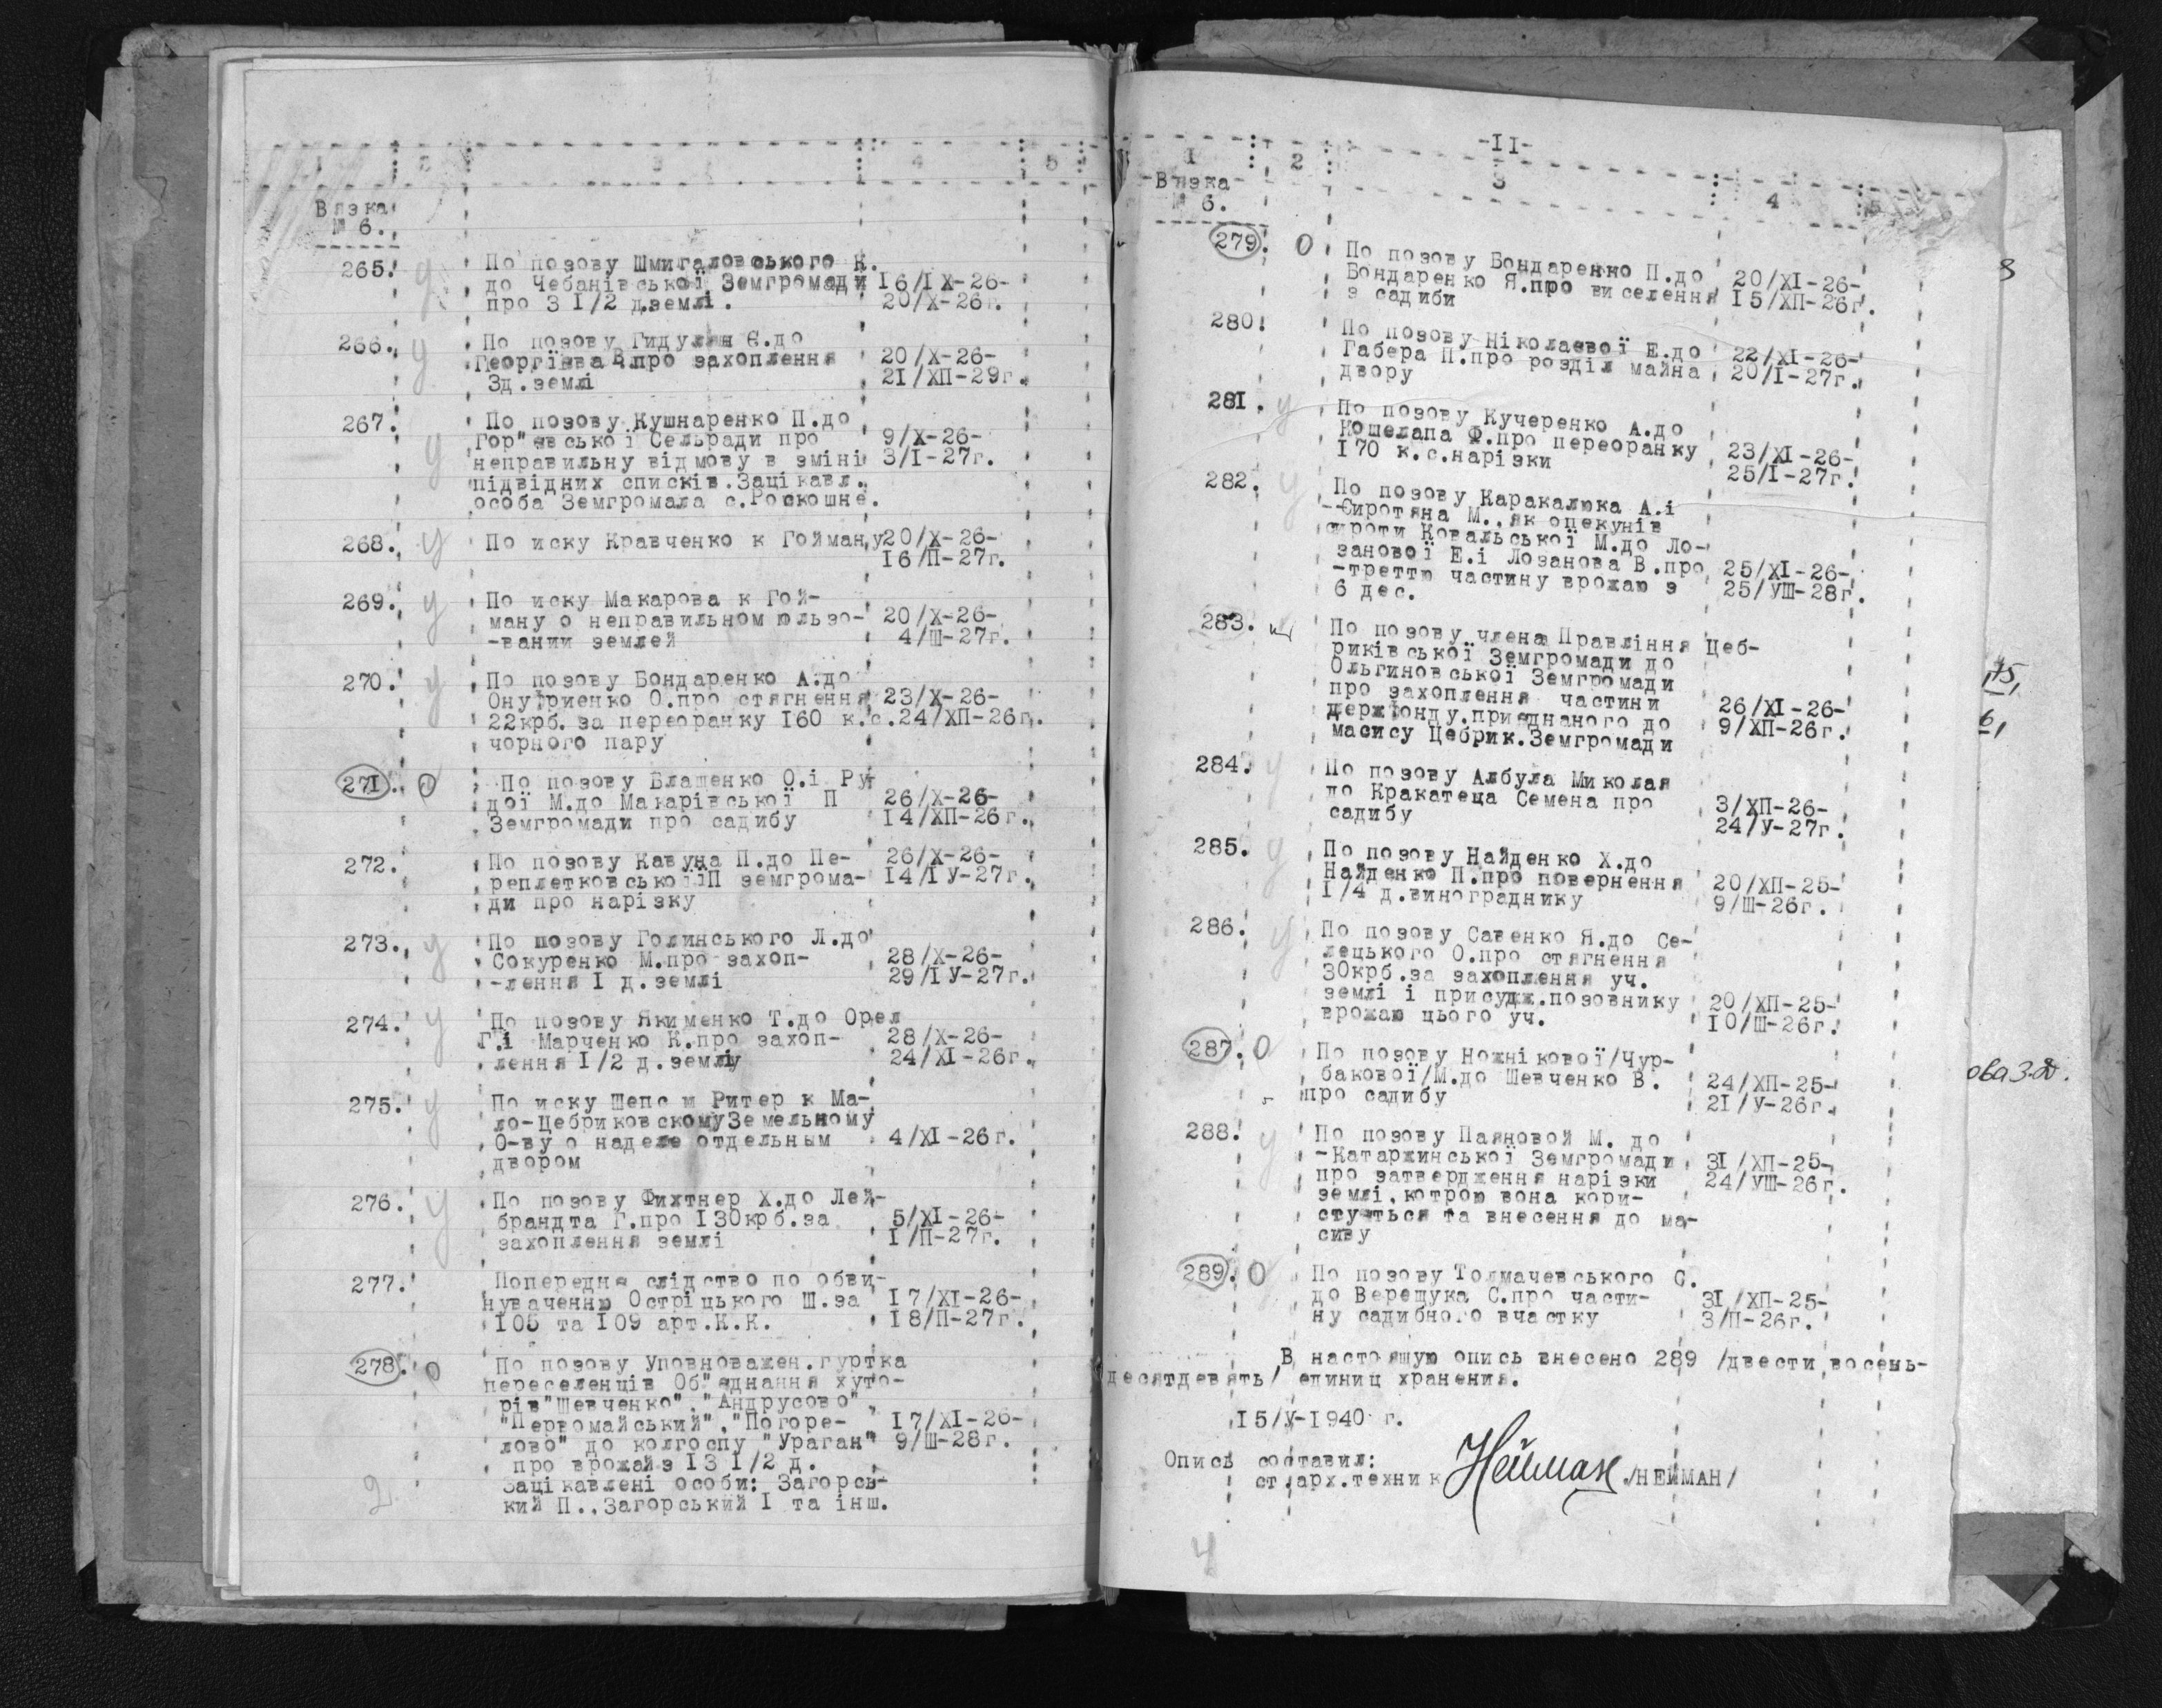 1 2 3 4 5
Вязка
№ 6.
265. у По позову Шмигаловського К.
до Чебанівської Земгромади 16/ІХ-26-
про 3 1/2 д.землі. 20/Х-26г.
266. у По позову Гидулян Є.до
Георгієва В.про захоплення 20/Х-26-
3д.землі 21/ХП-29г.
267. у По позову Кушнаренко П.до
Гор"евської Сельради про 9/Х-26-
неправильну відмову в зміні 3/І-27г.
підвідних списків.Зацікавл.
особа Земгромала с.Роскошне.
268. у По иску Кравченко к Гойману 20/Х-26-
16/П-27г.
269. у По иску Макарова к Гой-
ману о неправильном юльзо- 20/Х-26-
-вании землей 4/Ш-27г.
270. у По позову Бондаренко А.до
Онуфриенко О.про стягнення 23/Х-26-
22крб.за переоранку 160 к.с. 24/ХП-26г.
чорного пару
271. О По позову Блащенко О.і Ру
дої М.до Макарівської П 26/Х-26-
Земгромади про садибу 14/ХП-26г.
272. По позову Кавуна П.до Пе- 26/Х-26-
реплетковськоїП земгрома- 14/ІУ-27г.
ди про нарізку
273. у По позову Голинського Л.до
Сокуренко М.про захоп- 28/Х-26-
-лення І д.землі 29/ІУ-27г.
274. у По позову Якименко Т.до Орел
Г.і Марченко К.про захоп- 28/Х-26-
лення 1/2 д.землі 24/ХІ-26г.
275. у По иску Шепс ш Ритер к Ма-
ло-Цебриковскому Земельному
О-ву о наделе отдельным 4/ХІ-26г.
двором
276. у По позову Фихтнер Х.до Лей-
брандта Г.про 130крб.за 5/ХІ-26-
захоплення землі 1/П-27г.
277. Попереднє слідство по обви-
нуваченню Остріцького Ш.за 17/ХІ-26-
105 та 109 арт.К.К. 18/П-27г.
278. О По позову Уповноважен.гуртка
переселенців Об"єднання хуто-
рів"Шевченко","Андрусово",
"Первомайський","Погоре- 17/ХІ-26-
лово" до колгоспу "Ураган" 9/Ш-28г.
про врожайз 13 1/2 д.
Зацікавлені особи: Загорсь-
кий П.,Загорський І та інш.
2
-11-
1 2 3 4 5
Вязка
№ 6.
279. О По позову Бондаренко П.до
Бондаренко Я.про виселення 20/ХІ-26-
з садиби 15/ХП-26г.
280. По позову Ніколаєвої Е.до
Габера П.про розділ майна 22/ХІ-26-
двору 20/І-27г.
281. у По позову Кучеренко А.до
Кошелапа Ф.про переоранку 23/ХІ-26-
170 к.с.нарізки 25/І-27г.
282. у По позову Каракалюка А.і
-Сиротяна М.,як опекунів
сироти Ковальської М.до Ло-
занової Е.і Лозанова В.про 25/ХІ-26-
-треттю частину врожаю з 25/УШ-28г.
6 дес.
283. По позову члена Правління Цеб-
риківської Земгромади до
Ольгиновської Земгромади
про захоплення частини 26/ХІ-26-
держфонду.приєднаного до 9/ХП-26г.
масису Цебрик.Земгромади
284. у По позову Албула Миколая
до Кракатеца Семена про 3/ХП-26-
садибу 24/У-27г.
285. у По позову Найденко Х.до
Найденко П.про повернення 20/ХП-25-
1/4 д.винограднику 9/Ш-26г.
286. у По позову Савенко Я.до Се-
лецького О.про стягнення
30крб.за захоплення уч.
землі і присудж.позовнику 20/ХП-25-
врожаю цього уч. 10/Ш-26г.
287. О По позову Ножнікової/Чур-
бакової/М.до Шевченко В. 24/ХП-25-
про садибу 21/У-26г.
288. у По позову Паяновой М. до
-Катаржинської Земгромади 31/ХП-25-
про затвердження нарізки 24/УШ-26г.
землі,котрою вона кори-
стується та внесення до ма-
сиву
289. О По позову Толмачевського С.
до Верещука С.про части- 31/ХП-25-
ну садибного вчастку 3/П-26г.
В настоящую опись внесено 289 /двести восемь-
десятдевять/ единиц хранения.
15/У-1940 г.
Опись составил:
ст.арх.техник Нейман /НЕЙМАН/
4